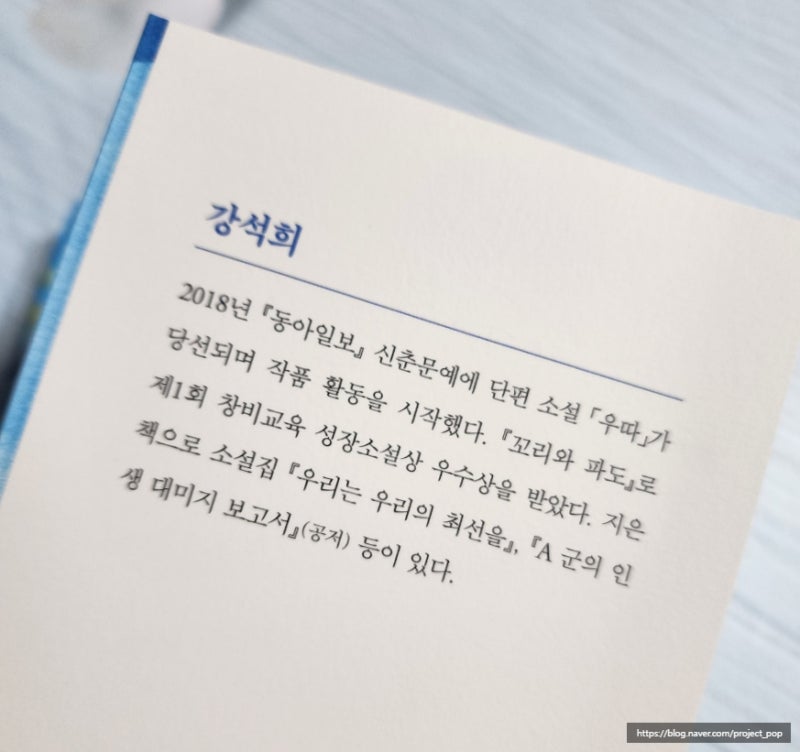 강석희
2018년 『동아일보』 신춘문예에 단편 소설 「우따」가
당선되며 작품 활동을 시작했다. 『꼬리와 파도』로
제1회 창비교육 성장소설상 우수상을 받았다. 지은
책으로 소설집 『우리는 우리의 최선을』, 『A 군의 인
생 대미지 보고서』(공저) 등이 있다.
https://blog.naver.com/project_pop